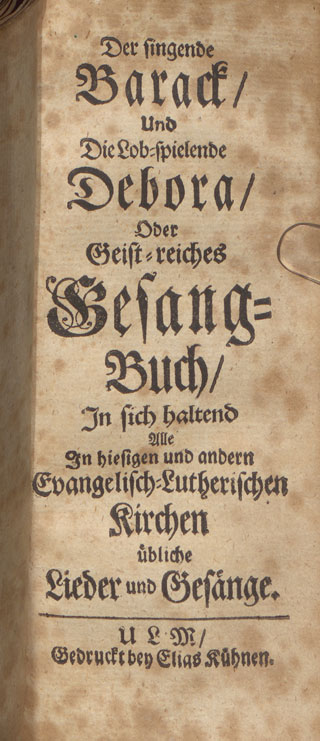 Der singende
Barack/
Und
Die Lob-spielende
Debora/
Oder
Geist-reiches
Gesang-
Buch/
In sich haltend
Alle
In hiesigen und andern
Evangelisch-Lutherischen
Kirchen
übliche
Lieder und Gesänge.
ULM/
Gedruckt bey Elias Kühnen.